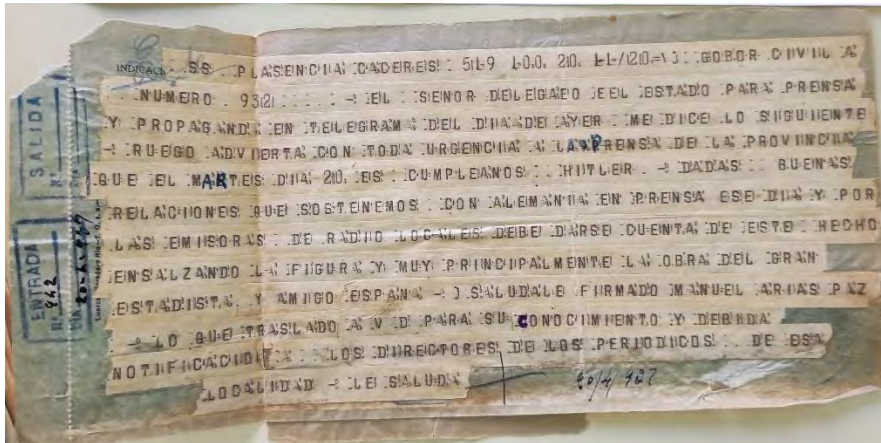 SALIDA
Nº
ENTRADA
Nº 942
DIA 20-4-937
INDICAC SS PLASENCIA CACERES 519 100 20 11/20=V GOBOR CIVIL A
NUMERO 932 - EL SENOR DELEGAEO EEL ESTADO PARA PRENSA
Y PROPAGANDA EN TELEGRAMA DEL DIA DE AYER ME DICE LO SIGUIENTE
- RUEGO ADVIERTA CON TODA URGENCIA A LA PRENSA DE LA PROVINCIA
QUE EL MARTES DIA 20 ES CUMPLEANOS HITLER - DADAS BUENAS
RELACIONES QUE SOSTENEMOS CON ALEMANIA EN PRENSA ESE DIA Y POR
LAS EMISORAS DE RADIO LOCALES DEBE DARSE CUENTA DE ESTE HECHO
ENSALZANDO LA FIGURA Y MUY PRINCIPALMENTE LA OBRA DEL GRAN
ESTADISTA Y AMIGO ESPANA - SALUDALE FIRMADO MANUEL ARIAS PAZ
- LO QUE TRASLADO A V D PARA SU CONOCIMIENTO Y DEBIDA
NOTIFICACION A LOS DIRECTORES DE LOS PERIODICOS DE ESA
LOCALIDAD - LE SALUDA
20/4/937